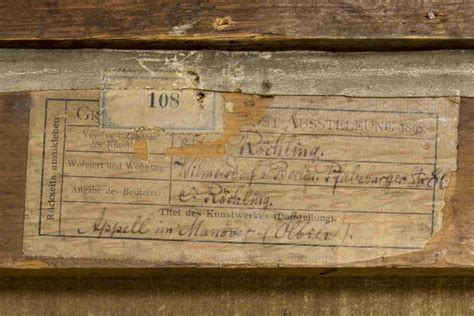 108
Gr st Ausstellung 1895
Vor- und Zuname
des Künstl
Röchling.
Wohnort und Wohnung
Wilmersdorf b. Berlin. Pfalzburger Str 86
Rückseits anzukleben
Angabe des Besitzers:
C. Röchling.
Titel des Kunstwerkes (Darstellung):
Appell im Manöver